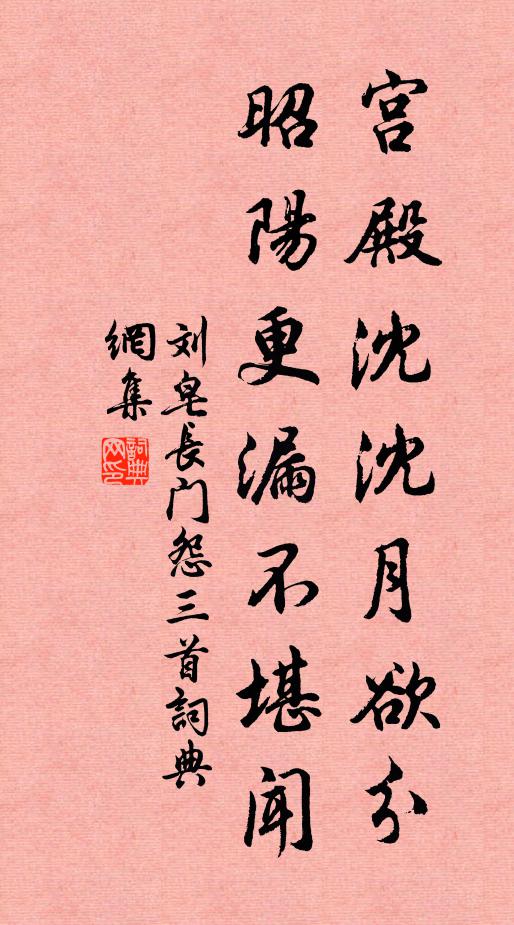 宫殿沈沈月欲分
昭陽更漏不堪聞
刘皂長门怨三首詞典
網集
詞典网印